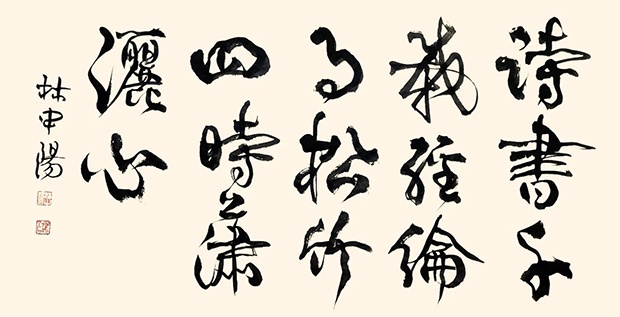 詩書千
載經綸
事松竹
四時瀟
灑心
林中陽